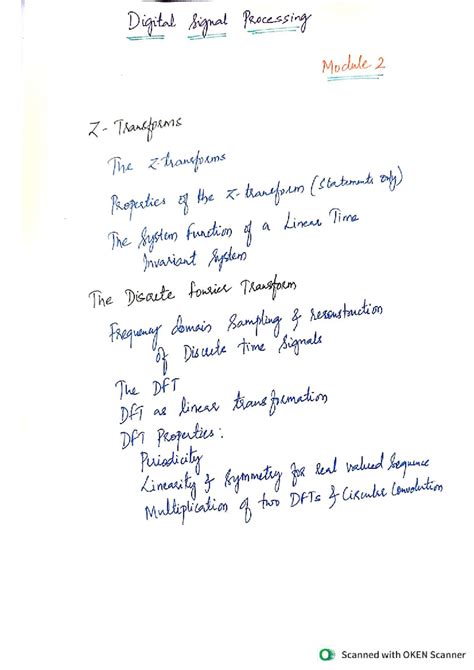 Digital Signal Processing
Module 2
Z-Transforms
The Z-transforms
Properties of the Z-transform (Statements Only)
The System Function of a Linear Time
Invariant System
The Discrete Fourier Transform
Frequency domain Sampling & reconstruction
of Discrete time Signals
The DFT
DFT as linear transformation
DFT Properties:
Periodicity
Linearity & Symmetry for Real Valued Sequence
Multiplication of two DFTs & Circular Convolution
Scanned with OKEN Scanner